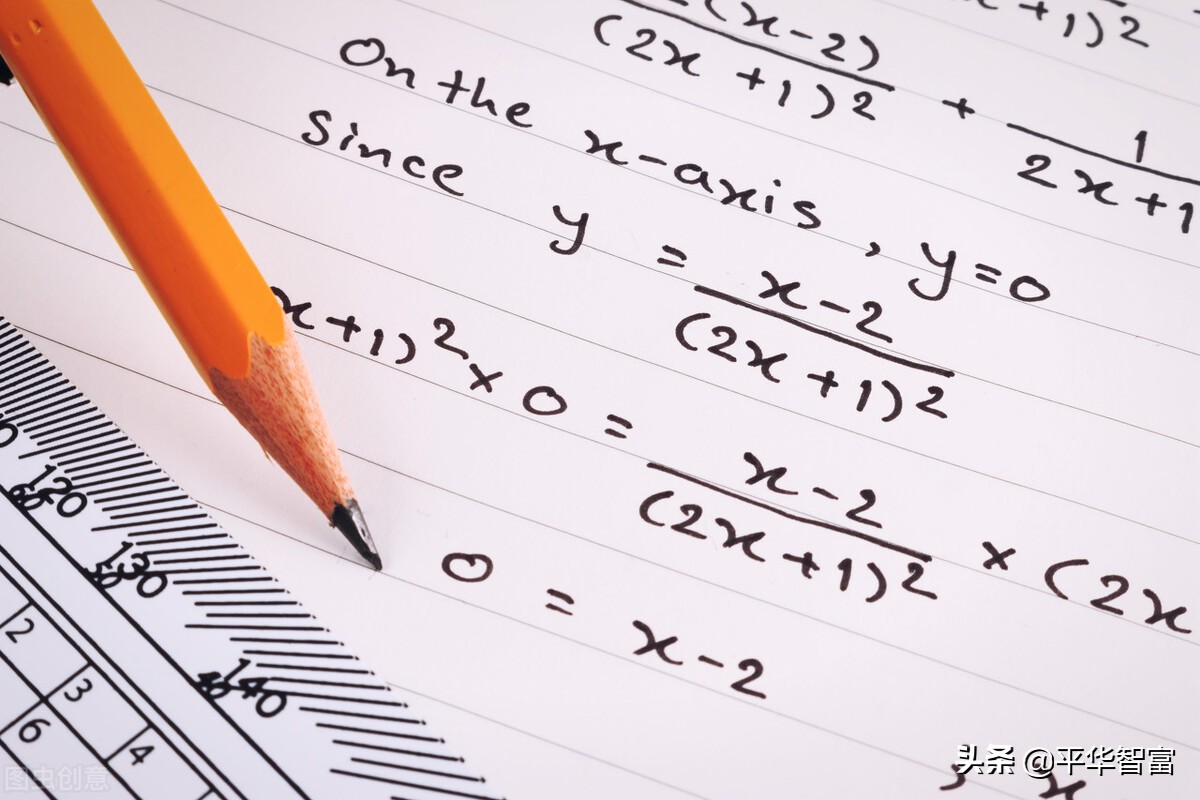 (x-2)
(2x+1)² + 1
2x+1
x+1)²
On the x-axis, y=0
since y = x-2
(2x+1)²
x+1)² × 0 = x-2
(2x+1)² × (2x
0 = x-2
120
60
130
50
140
40
2
3
4
6
头条 @平华智富
图虫创意